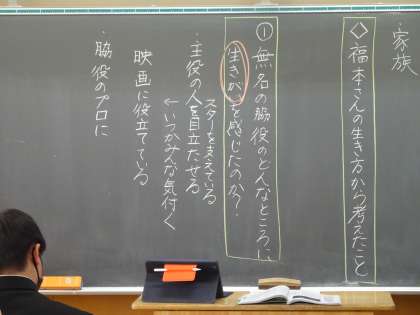 ・家族
◇福本さんの生き方から考えたこと
①無名の脇役のどんなところに
生きがいを感じたのか?
スターを支えている
・主役の人を目立たせる
←いつかみんな気付く
映画に役立てている
・脇役のプロに